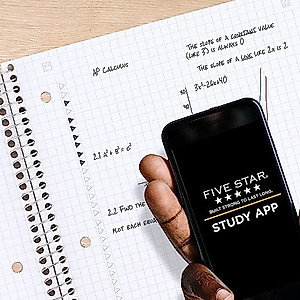 THE SLOPE OF A CONSTANT VALUE
(LIKE 3) IS ALWAYS 0
AP CALCULUS
THE SLOPE OF A LINE LIKE 2X IS 2
3x²-26x+40
2.1 A² + B² = C²
2.2 FIND THE
NOT EACH EQUA
FIVE STAR
BUILT STRONG TO LAST LONG.
STUDY APP